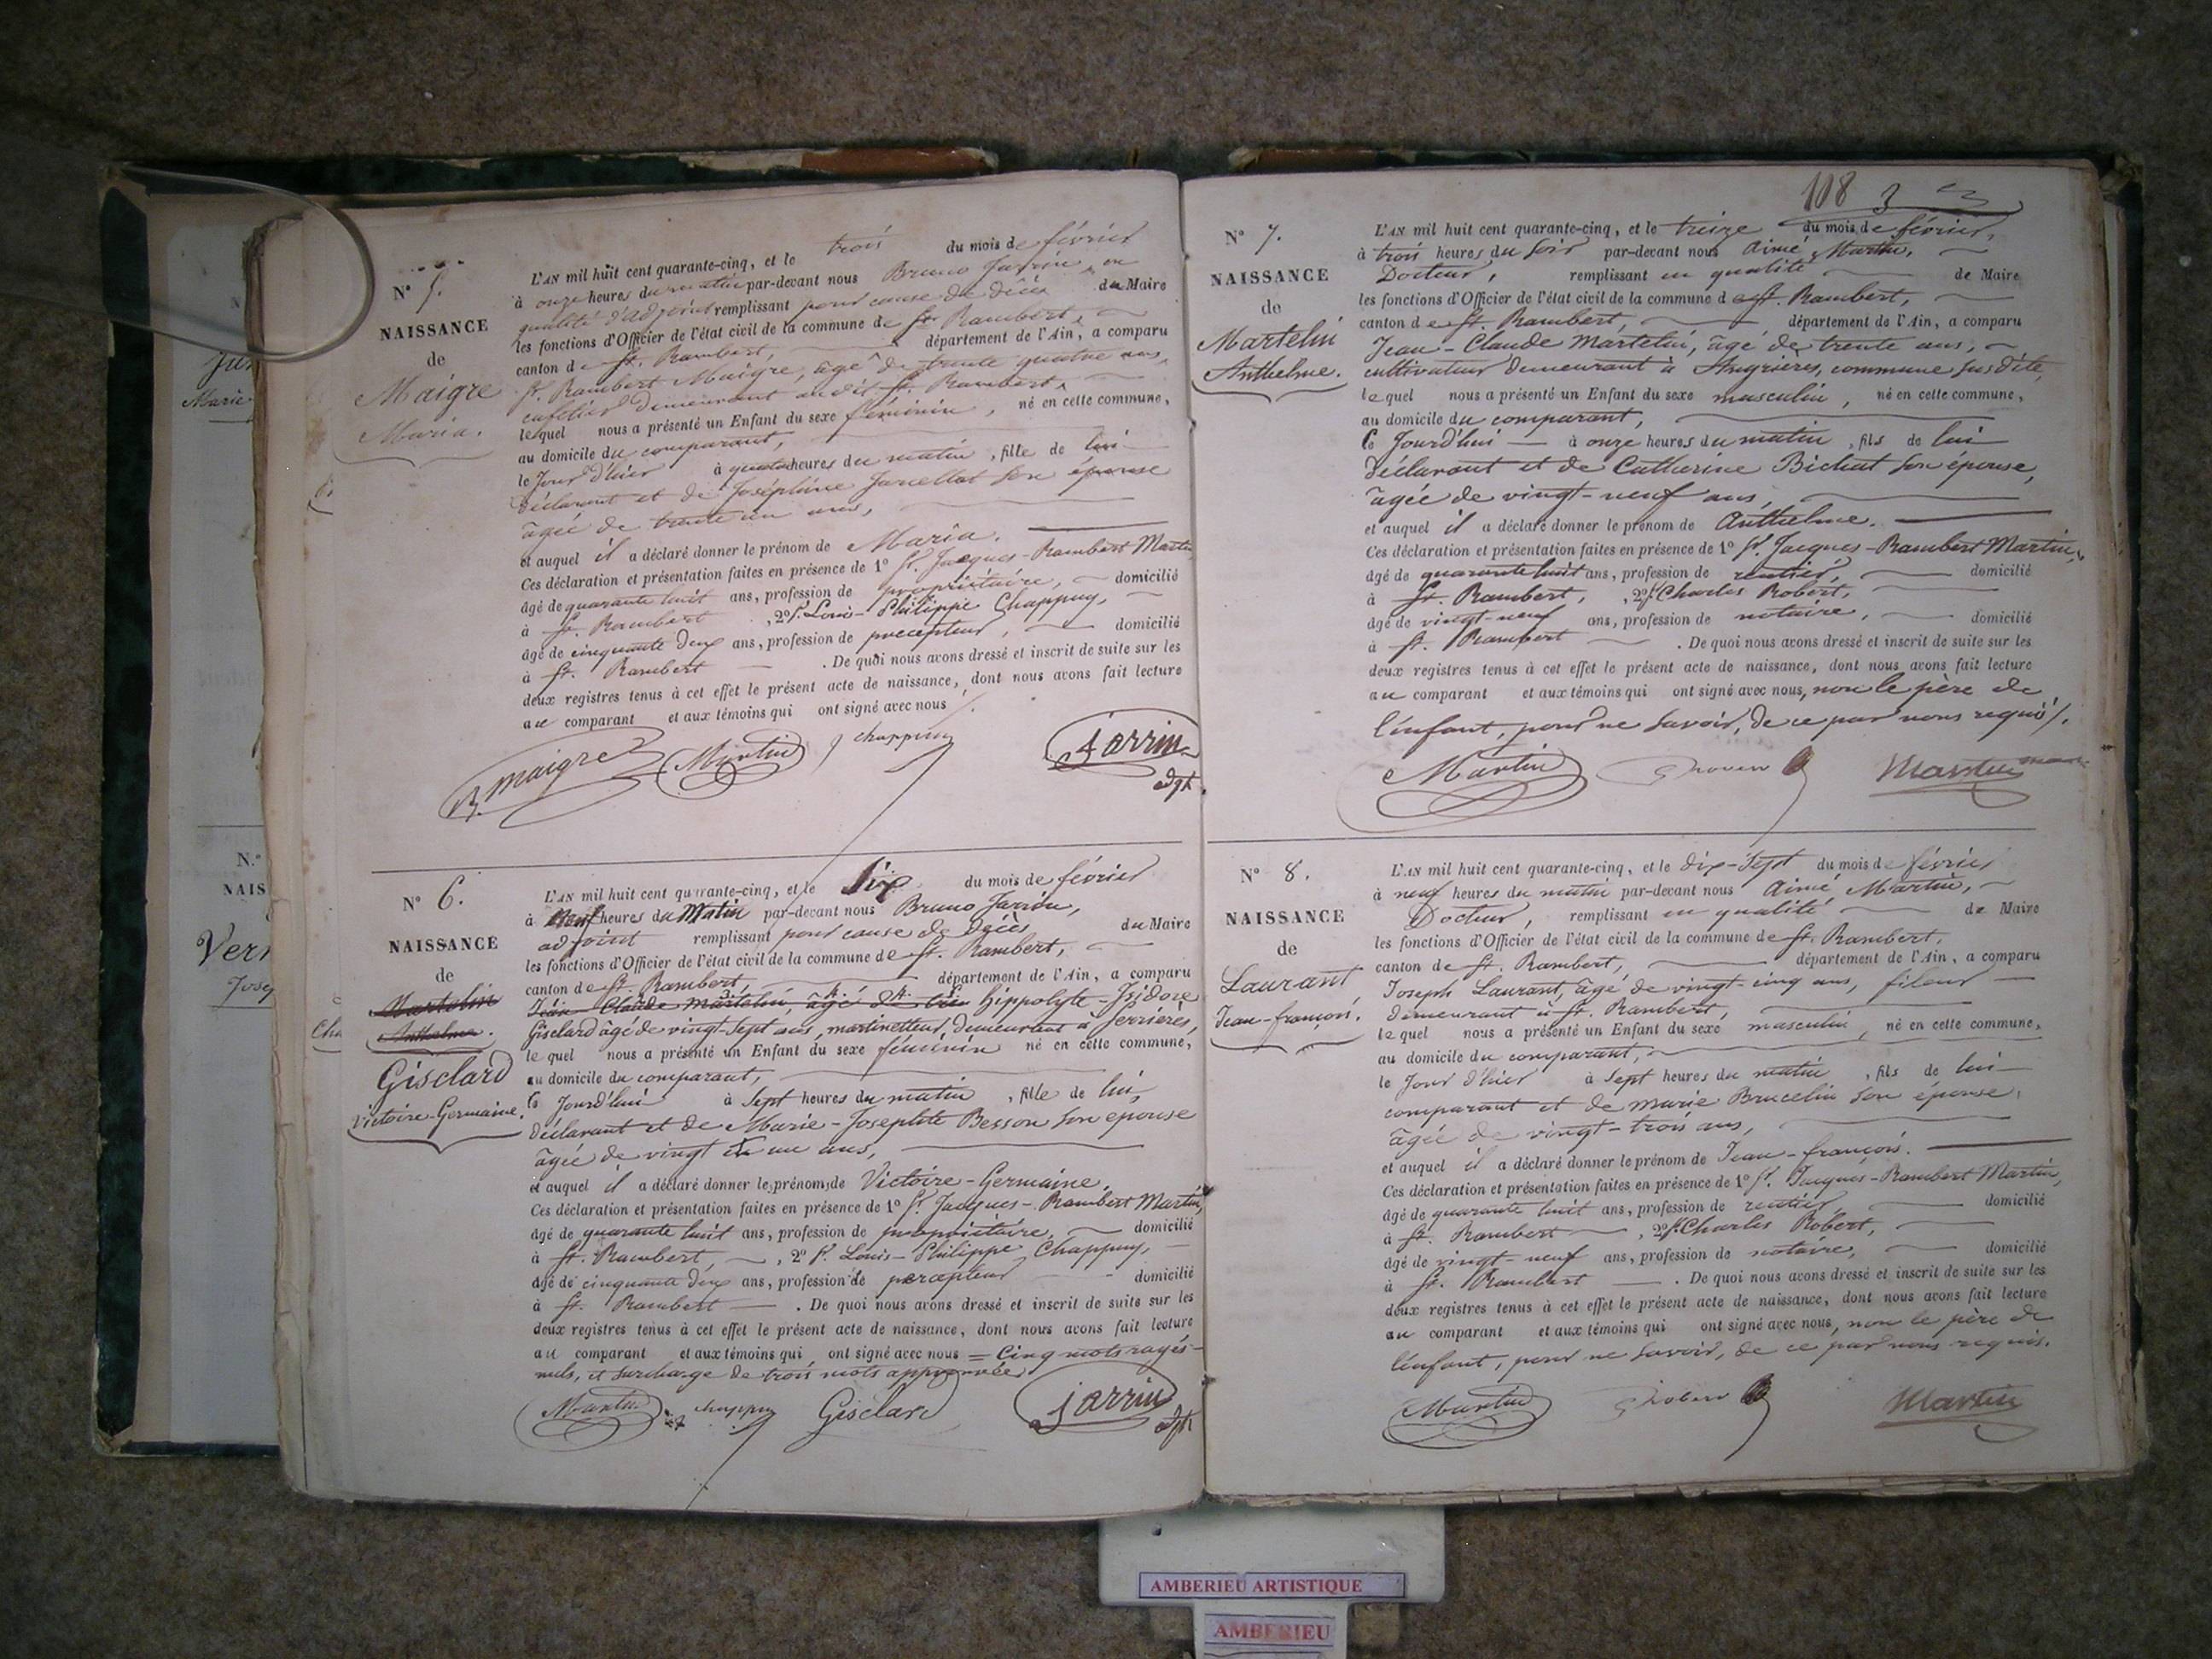 N° 5.
NAISSANCE
de
Maigre
Maria.
L'AN mil huit cent quarante-cinq, et le trois du mois de février
à onze heures du matin par-devant nous Bruno Jarrin, en
qualité d'adjoint remplissant pour cause de décès du Maire
les fonctions d'Officier de l'état civil de la commune de St. Rambert,
canton de St. Rambert, département de l'Ain, a comparu
Sr. Rambert Maigre, âgé de trente quatre ans,
cafetier demeurant audit St. Rambert,
lequel nous a présenté un Enfant du sexe féminin, né en cette commune,
au domicile du comparant,
le Jour d'hier à quatre heures du matin, fille de lui
déclarant et de Joséphine son épouse
âgée de trente un ans,
et auquel il a déclaré donner le prénom de Maria.
Ces déclaration et présentation faites en présence de 1° Sr. Jacques-Rambert Martin
âgé de quarante huit ans, profession de propriétaire, domicilié
à St. Rambert, 2° Sr. Louis-Philippe Chappuy,
âgé de cinquante deux ans, profession de precepteur, domicilié
à St. Rambert. De quoi nous avons dressé et inscrit de suite sur les
deux registres tenus à cet effet le présent acte de naissance, dont nous avons fait lecture
au comparant et aux témoins qui ont signé avec nous
R. Maigre Martin chappuy Jarrin
adjt
N° 6.
NAISSANCE
de
Martelin
Anthelme.
Gisclard
Victoire-Germaine.
L'AN mil huit cent quarante-cinq, et le Six du mois de février
à Neuf heures du Matin par-devant nous Bruno Jarrin,
adjoint remplissant pour cause de décès du Maire
les fonctions d'Officier de l'état civil de la commune de St. Rambert,
canton de St. Rambert, département de l'Ain, a comparu
Jean-Claude Martelin, âgé de Hippolyte-Isidore
Gisclard âgé de vingt-sept ans, martinetteur, demeurant à Serrières,
lequel nous a présenté un Enfant du sexe féminin né en cette commune,
au domicile du comparant,
Ce Jourd'hui à Sept heures du matin, fille de lui,
déclarant et de Marie-Josephte Besson son epouse
âgée de vingt un ans,
et auquel il a déclaré donner les prénoms de Victoire-Germaine.
Ces déclaration et présentation faites en présence de 1° Sr. Jacques-Rambert Martin,
âgé de quarante huit ans, profession de propriétaire, domicilié
à St. Rambert, 2° Sr. Louis-Philippe Chappuy,
âgé de cinquante deux ans, profession de percepteur domicilié
à St. Rambert. De quoi nous avons dressé et inscrit de suite sur les
deux registres tenus à cet effet le présent acte de naissance, dont nous avons fait lecture
au comparant et aux témoins qui ont signé avec nous = Cinq mots rayés
nuls, et surcharge de trois mots approuvées
Martin chappuy Gisclard Jarrin
adjt
108 3
N° 7.
NAISSANCE
de
Martelin
Anthelme.
L'AN mil huit cent quarante-cinq, et le treize du mois de février,
à trois heures du soir par-devant nous Aimé Martin,
Docteur, remplissant en qualité de Maire
les fonctions d'Officier de l'état civil de la commune de St. Rambert,
canton de St. Rambert, département de l'Ain, a comparu
Jean-Claude Martelin, âgé de trente ans,
cultivateur demeurant à Angrières, commune susdite,
lequel nous a présenté un Enfant du sexe masculin, né en cette commune,
au domicile du comparant,
Ce Jourd'hui à onze heures du matin, fils de lui
déclarant et de Catherine Bichat son épouse,
âgée de vingt-neuf ans,
et auquel il a déclaré donner le prénom de Anthelme.
Ces déclaration et présentation faites en présence de 1° Sr. Jacques-Rambert Martin,
âgé de quarante huit ans, profession de rentier, domicilié
à St. Rambert, 2° Sr. Charles Robert,
âgé de vingt-neuf ans, profession de notaire, domicilié
à St. Rambert. De quoi nous avons dressé et inscrit de suite sur les
deux registres tenus à cet effet le présent acte de naissance, dont nous avons fait lecture
au comparant et aux témoins qui ont signé avec nous, non le père de
l'enfant, pour ne savoir, de ce par nous requis.
Martin Martin
N° 8.
NAISSANCE
de
Laurant
Jean-françois.
L'AN mil huit cent quarante-cinq, et le dix-sept du mois de février
à neuf heures du matin par-devant nous Aimé Martin,
Docteur, remplissant en qualité de Maire
les fonctions d'Officier de l'état civil de la commune de St. Rambert,
canton de St. Rambert, département de l'Ain, a comparu
Joseph Laurant, âgé de vingt-cinq ans, fileur
demeurant à St. Rambert,
lequel nous a présenté un Enfant du sexe masculin, né en cette commune,
au domicile du comparant,
le Jour d'hier à Sept heures du matin, fils de lui
comparant et de Marie Brucelin son épouse,
âgée de vingt-trois ans,
et auquel il a déclaré donner le prénom de Jean-françois.
Ces déclaration et présentation faites en présence de 1° Sr. Jacques-Rambert Martin,
âgé de quarante huit ans, profession de rentier, domicilié
à St. Rambert, 2° Sr. Charles Robert,
âgé de vingt-neuf ans, profession de notaire, domicilié
à St. Rambert. De quoi nous avons dressé et inscrit de suite sur les
deux registres tenus à cet effet le présent acte de naissance, dont nous avons fait lecture
au comparant et aux témoins qui ont signé avec nous, non le père de
l'enfant, pour ne savoir, de ce par nous requis.
Martin Martin
AMBERIEU ARTISTIQUE
AMBERIEU